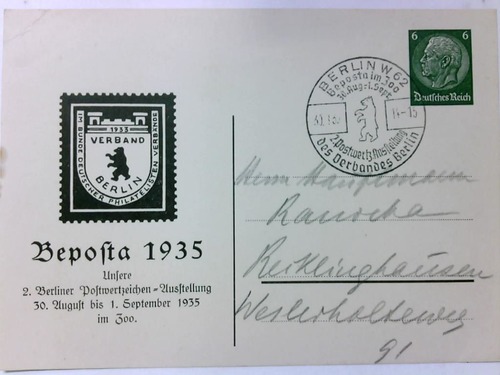 1935
VERBAND
BERLIN
IM BUNDE DEUTSCHER PHILATELISTEN-VERBÄNDE
Beposta 1935
Unsere
2. Berliner Postwertzeichen-Ausstellung
30. August bis 1. September 1935
im Zoo.
BERLIN W 62
Beposta im Zoo
30. Aug.-1. Sept.
14-15
2. Postwertz. Ausstellung
des Verbandes Berlin
6 6
Deutsches Reich
Herrn Hauptmann
Recklinghausen
Westerholterweg
91